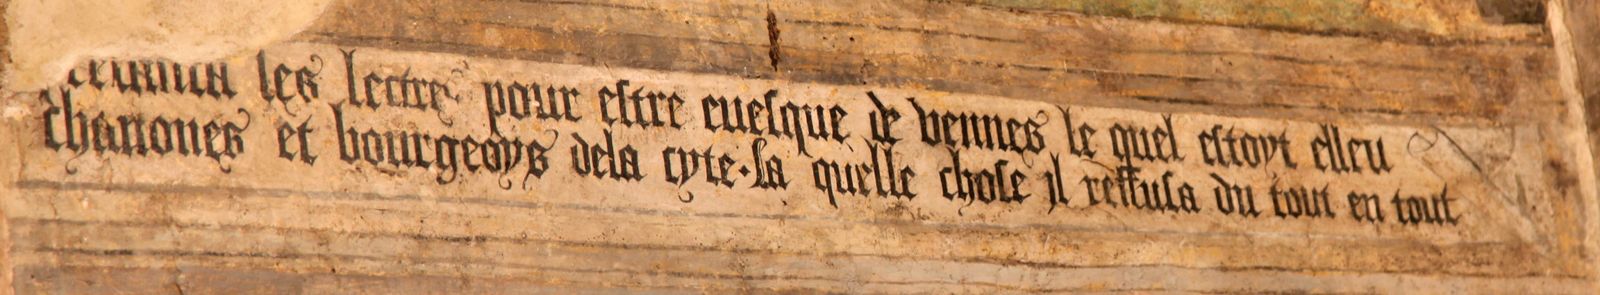 les lectres pour estre euesque de vennes le quel estoyt esleu
chanoues et bourgeoys dela cyte · la quelle chose il reffusa du tout en tout